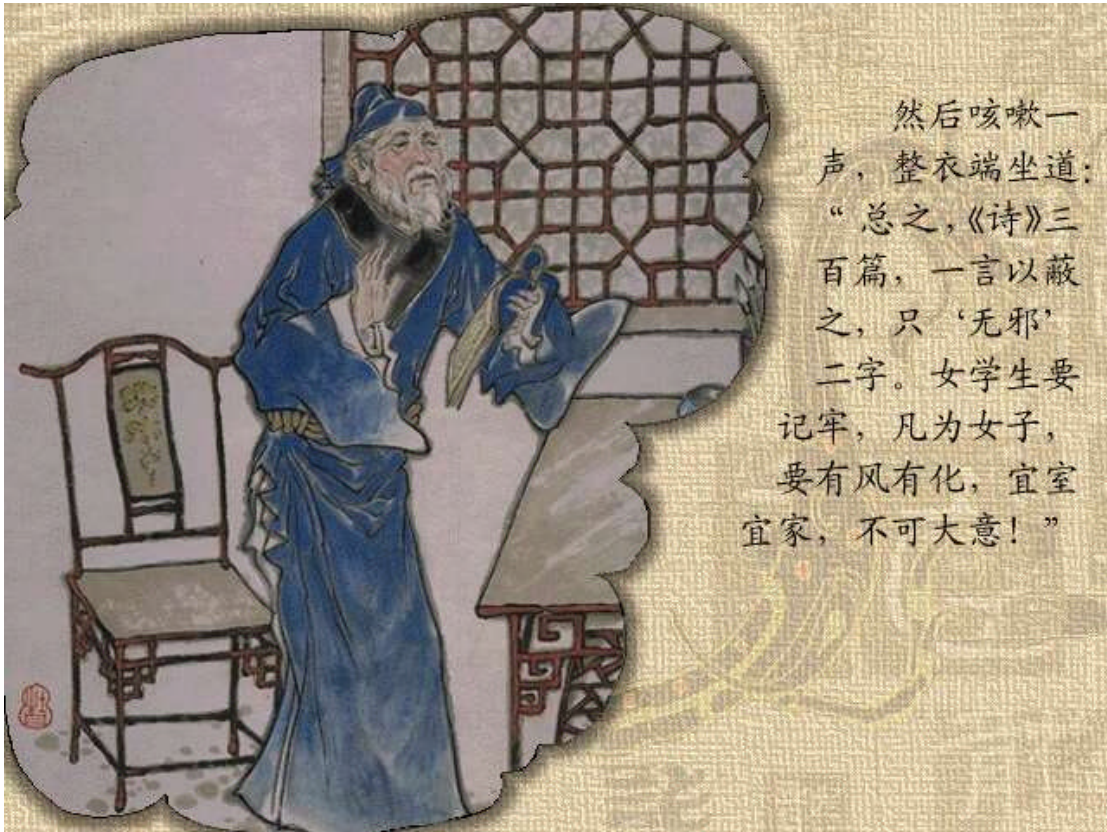 然后咳嗽一
声，整衣端坐道：
“总之，《诗》三
百篇，一言以蔽
之，只‘无邪’
二字。女学生要
记牢，凡为女子，
要有风有化，宜室
宜家，不可大意！”